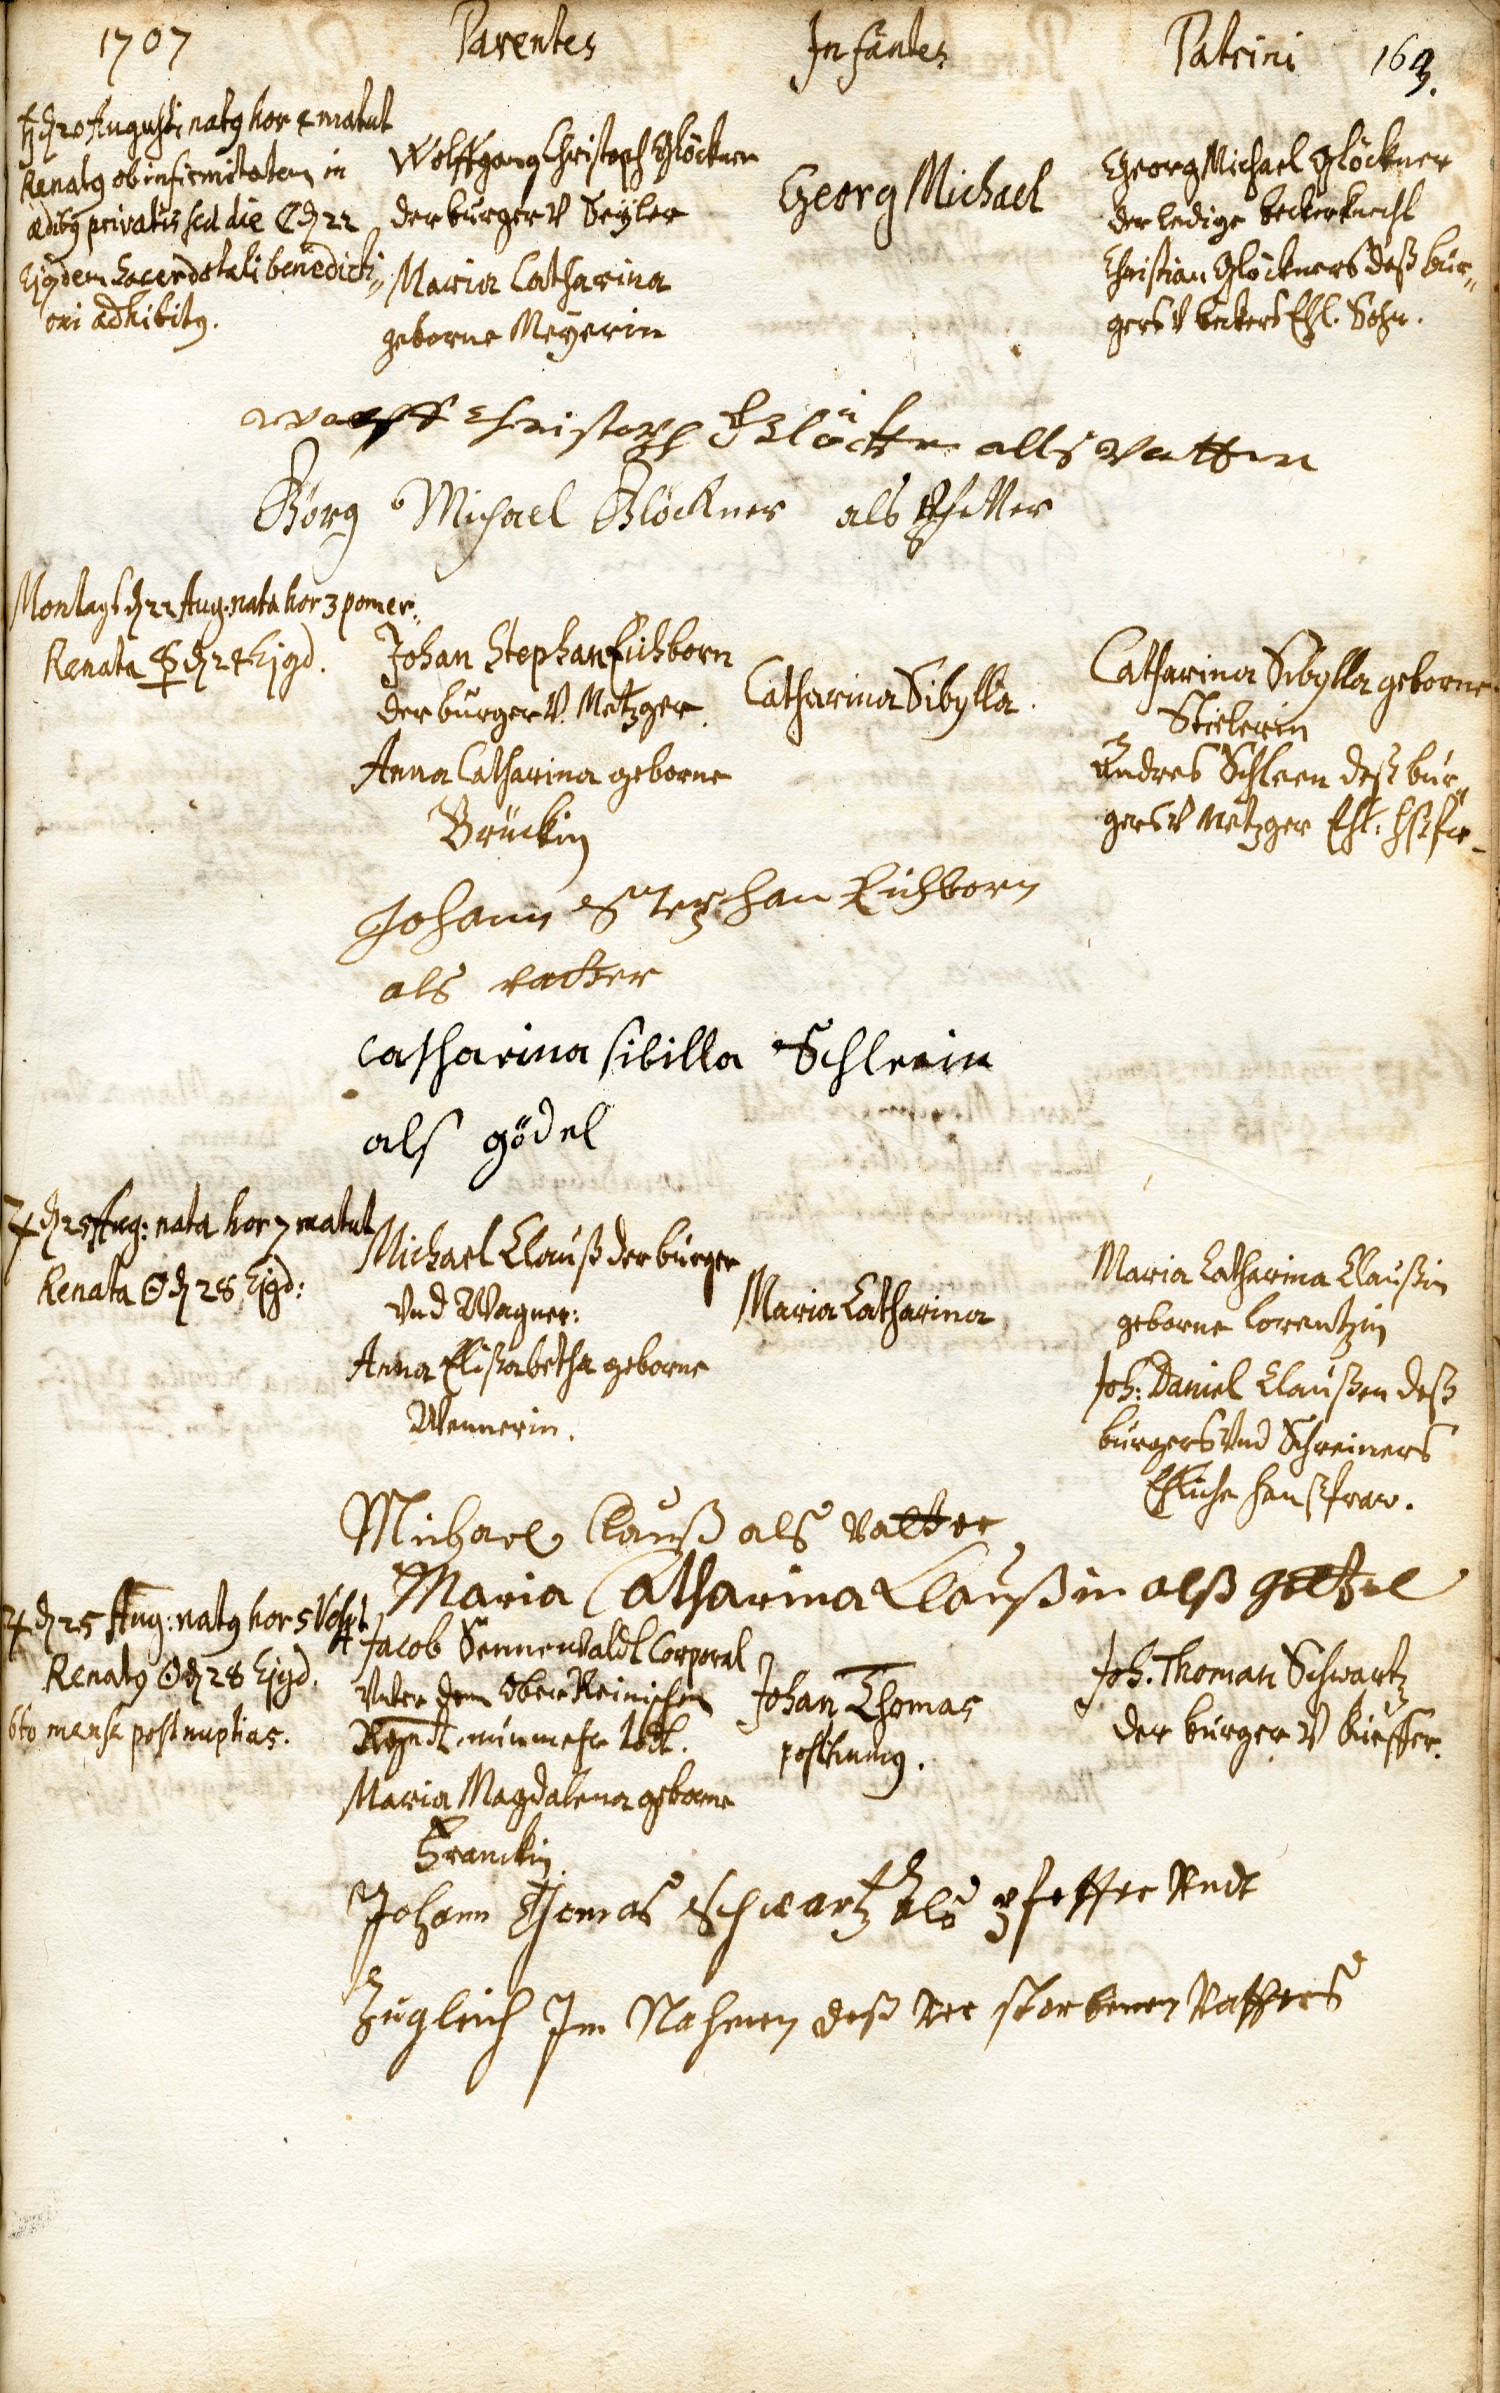 1707 Parentes Infantes Patrini 163.
♄ d 20 Augusti natq hor 4 matut
Renatq ob infirmitatem in
ædibq privatis sed die ☾ d 22
Ejqdem Sacerdotali benedicti„
oni adhibitq.
Wolffgang Christoph Glöckner
der burger v Seyler
Maria Catharina
geborne Meyerin
Georg Michael
Georg Michael Glöckner
der ledige beckerknecht
Christian Glöckners deß bur„
gers v beckers Ehl. Sohn.
Christoph Glöckner alls Vatter
Görg Michael Glöckner als
Montags d 22 Aug. nata hor 3 pomer.
Renata ☿ d 24 Ejqd.
Johan Stephan Eichborn
der burger v. Metzger
Anna Catharina geborne
Brückin
Catharina Sibylla.
Catharina Sibylla geborne
Stielerin
Andres Schleen deß bur„
gers v Metzger Ehl:
Johann Stephan Eichborn
als vatter
Catharina sibilla Schlein
als gödel
♃ d 25 Aug: nata hor 7 matut
Renata ☉ d 28 Ejqd:
Michael Clauß der burger
Vnd Wagner:
Anna Elisabetha geborne
Wennerin.
Maria Catharina
Maria Catharina Claußin
geborne Lorentzin
Joh: Daniel Claußen deß
burgers Vnd Schreiners
Ehliche haußfraw.
Michael Clauß als Vatter
Maria Catharina Claußin alß
♃ d 25 Aug: natq hor 5 Vesp
Renatq ☉ d 28 Ejqd.
6to mense post nuptias.
Jacob Sennewaldt Corporal
Vnter dem Ober Reinischen
Regmt nunmehr todt.
Maria Magdalena geborne
Franckin.
Johan Thomas
posthumq.
Joh. Thoman Schwartz
der burger v kueffer.
Johann Thomas Schwartz als pfetter Vndt
Zugleich Im Nahmen deß Ver storbenen Vatters